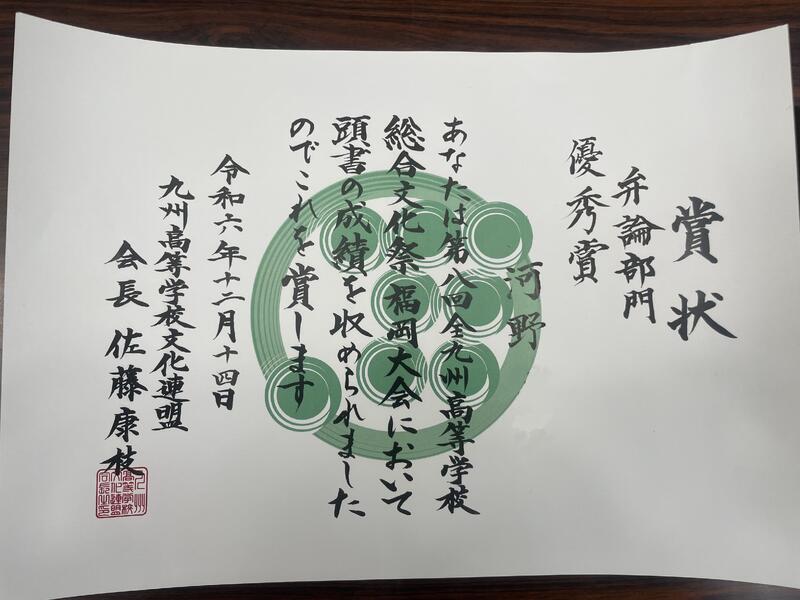 賞状
弁論部門
優秀賞
河野
あなたは第八回全九州高等学校
総合文化祭福岡大会において
頭書の成績を収められました
のでこれを賞します
令和六年十二月十四日
九州高等学校文化連盟
会長 佐藤康枝